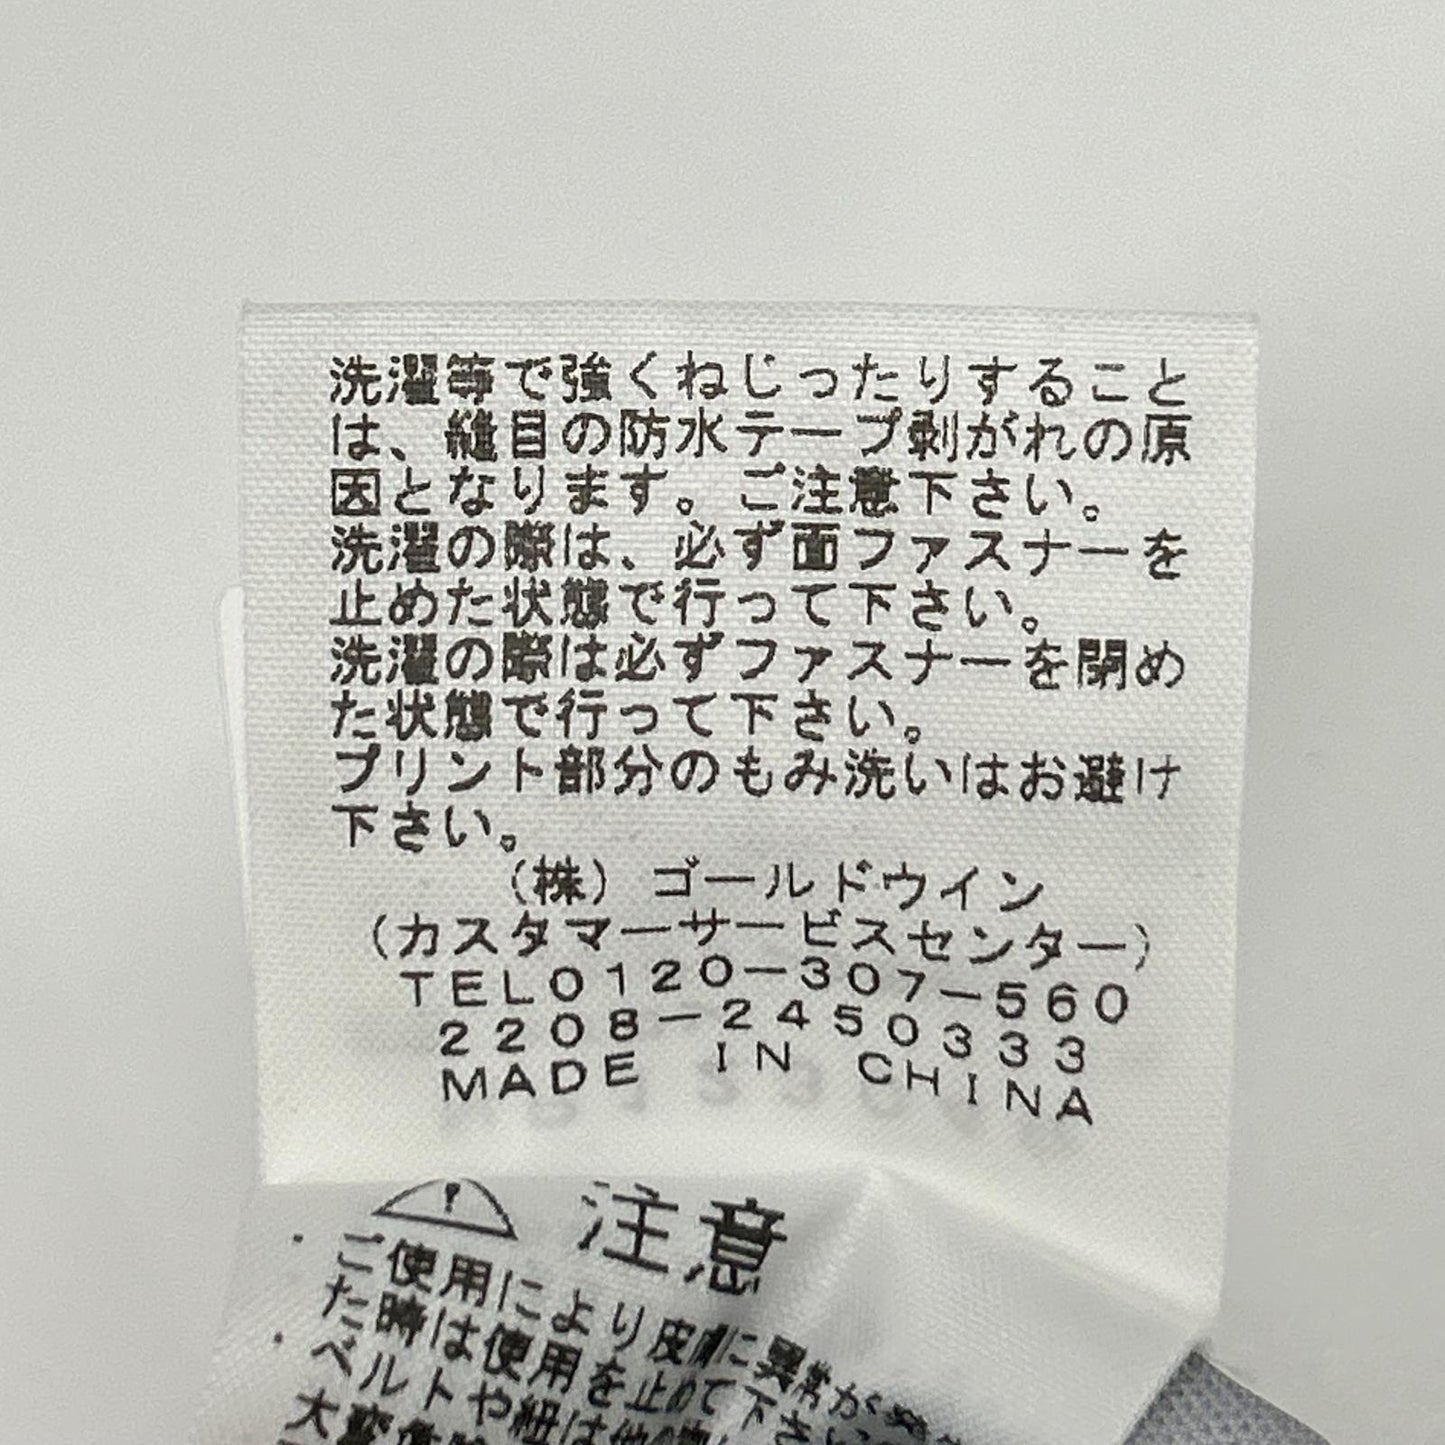 洗濯等で強くねじったりすること
は、縫目の防水テープ剥がれの原
因となります。ご注意下さい。
洗濯の際は、必ず面ファスナーを
止めた状態で行って下さい。
洗濯の際は必ずファスナーを閉め
た状態で行って下さい。
プリント部分のもみ洗いはお避け
下さい。
(株) ゴールドウイン
(カスタマーサービスセンター)
TEL0120-307-560
2208-2450333
MADE IN CHINA
注意
・ご使用により皮膚に異常が
た時は使用を止めて下さい
・ベルトや紐は他の物
大変危険